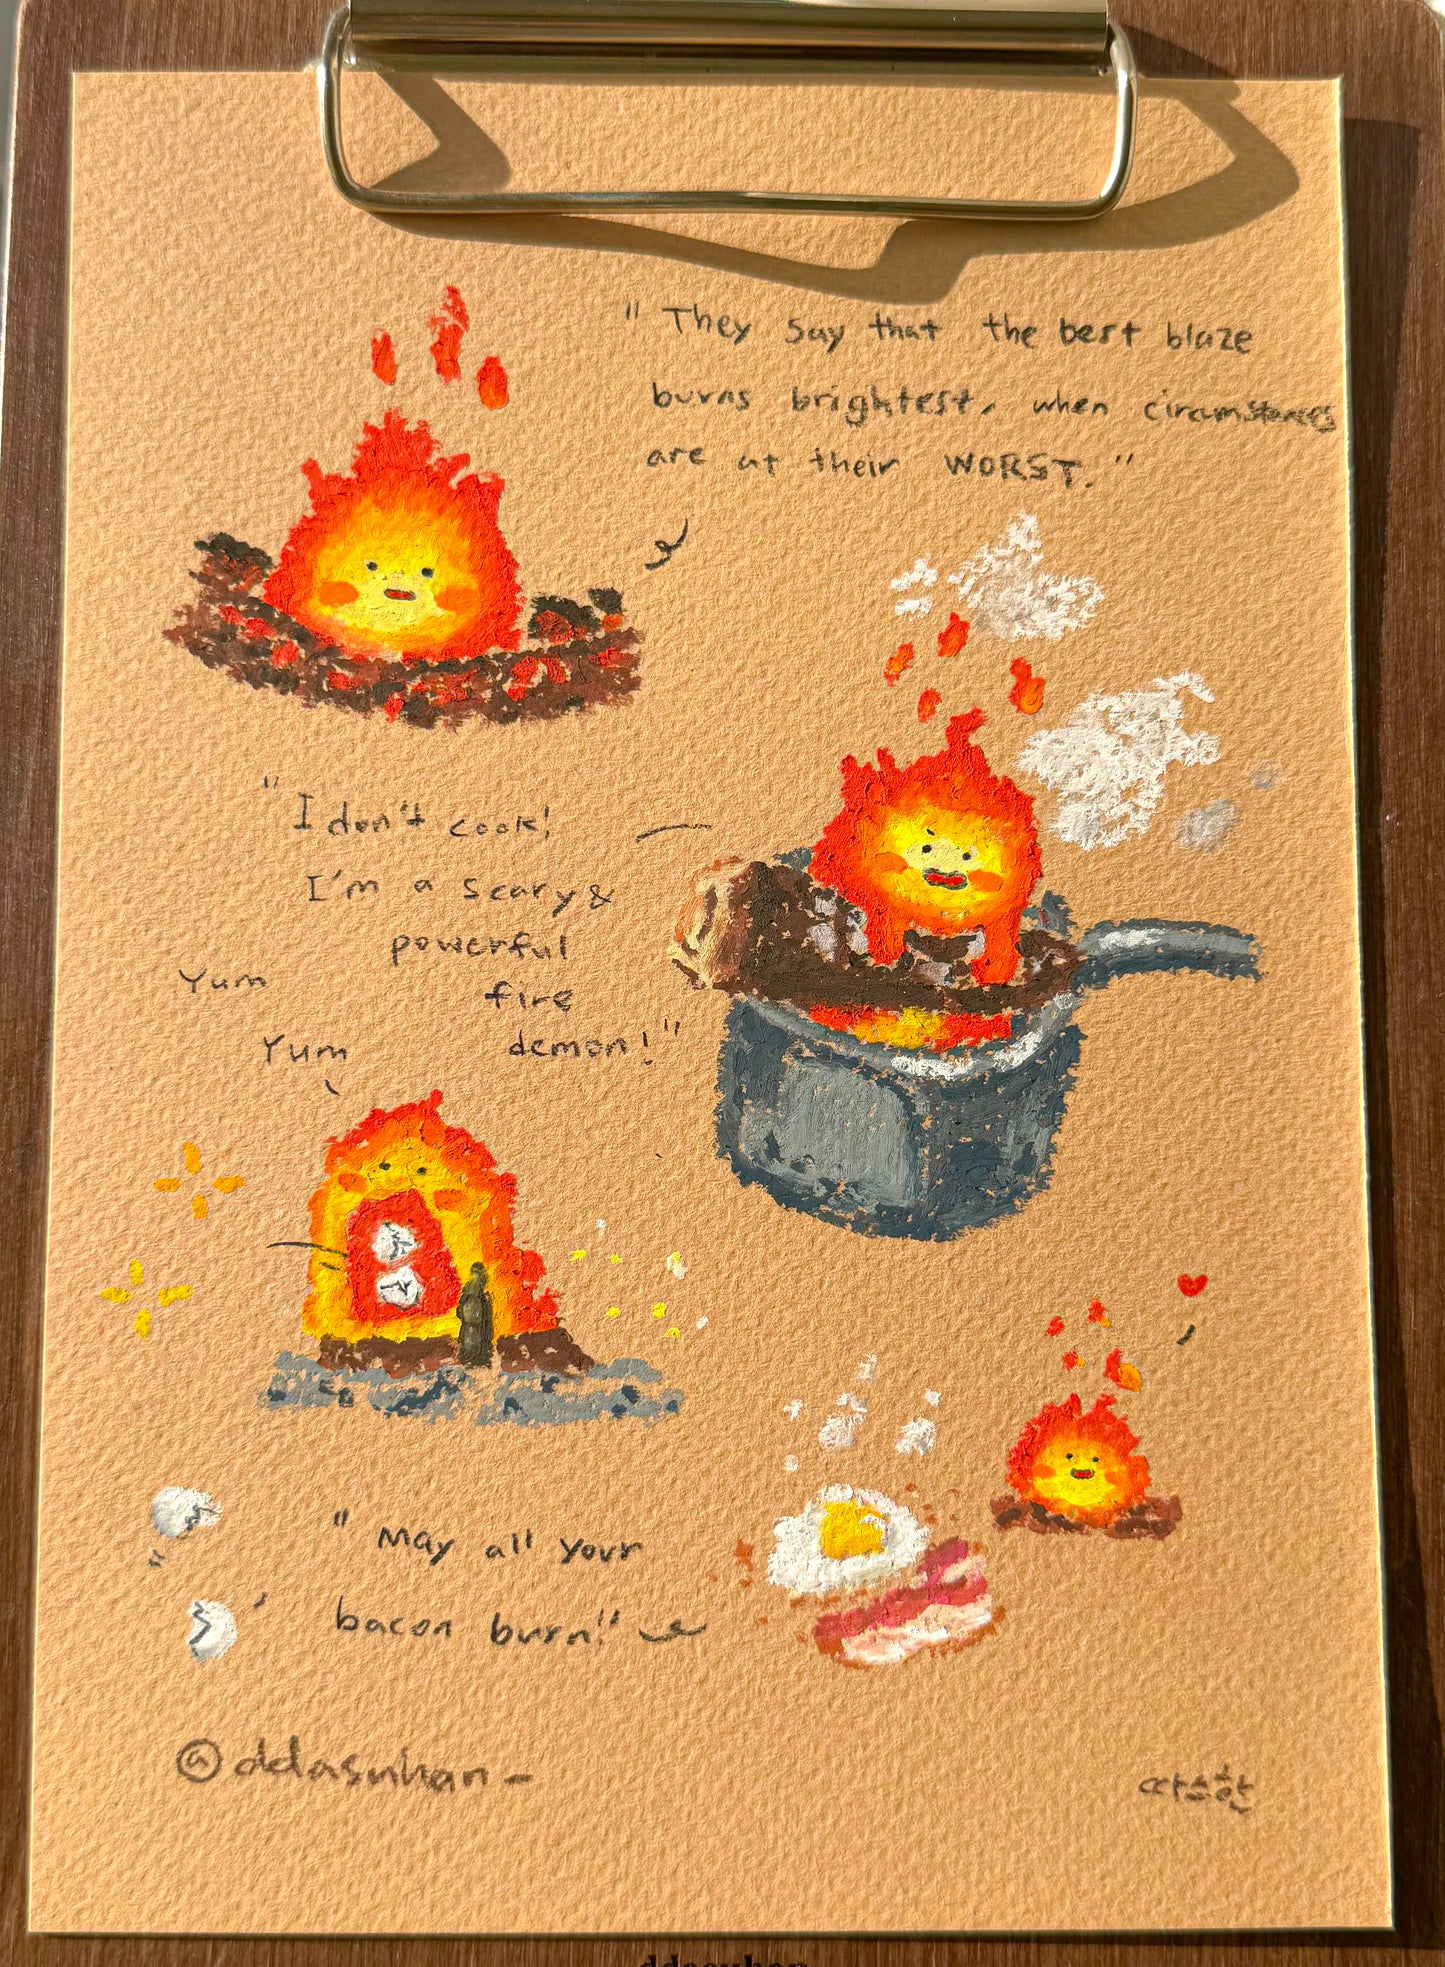 " They say that the best blaze
burns brightest, when circumstances
are at their WORST. "
" I don't cook!
I'm a scary &
powerful
fire
demon! "
Yum
Yum
" May all your
bacon burn! "
@ddasuhan_
따스한
ddasuhan